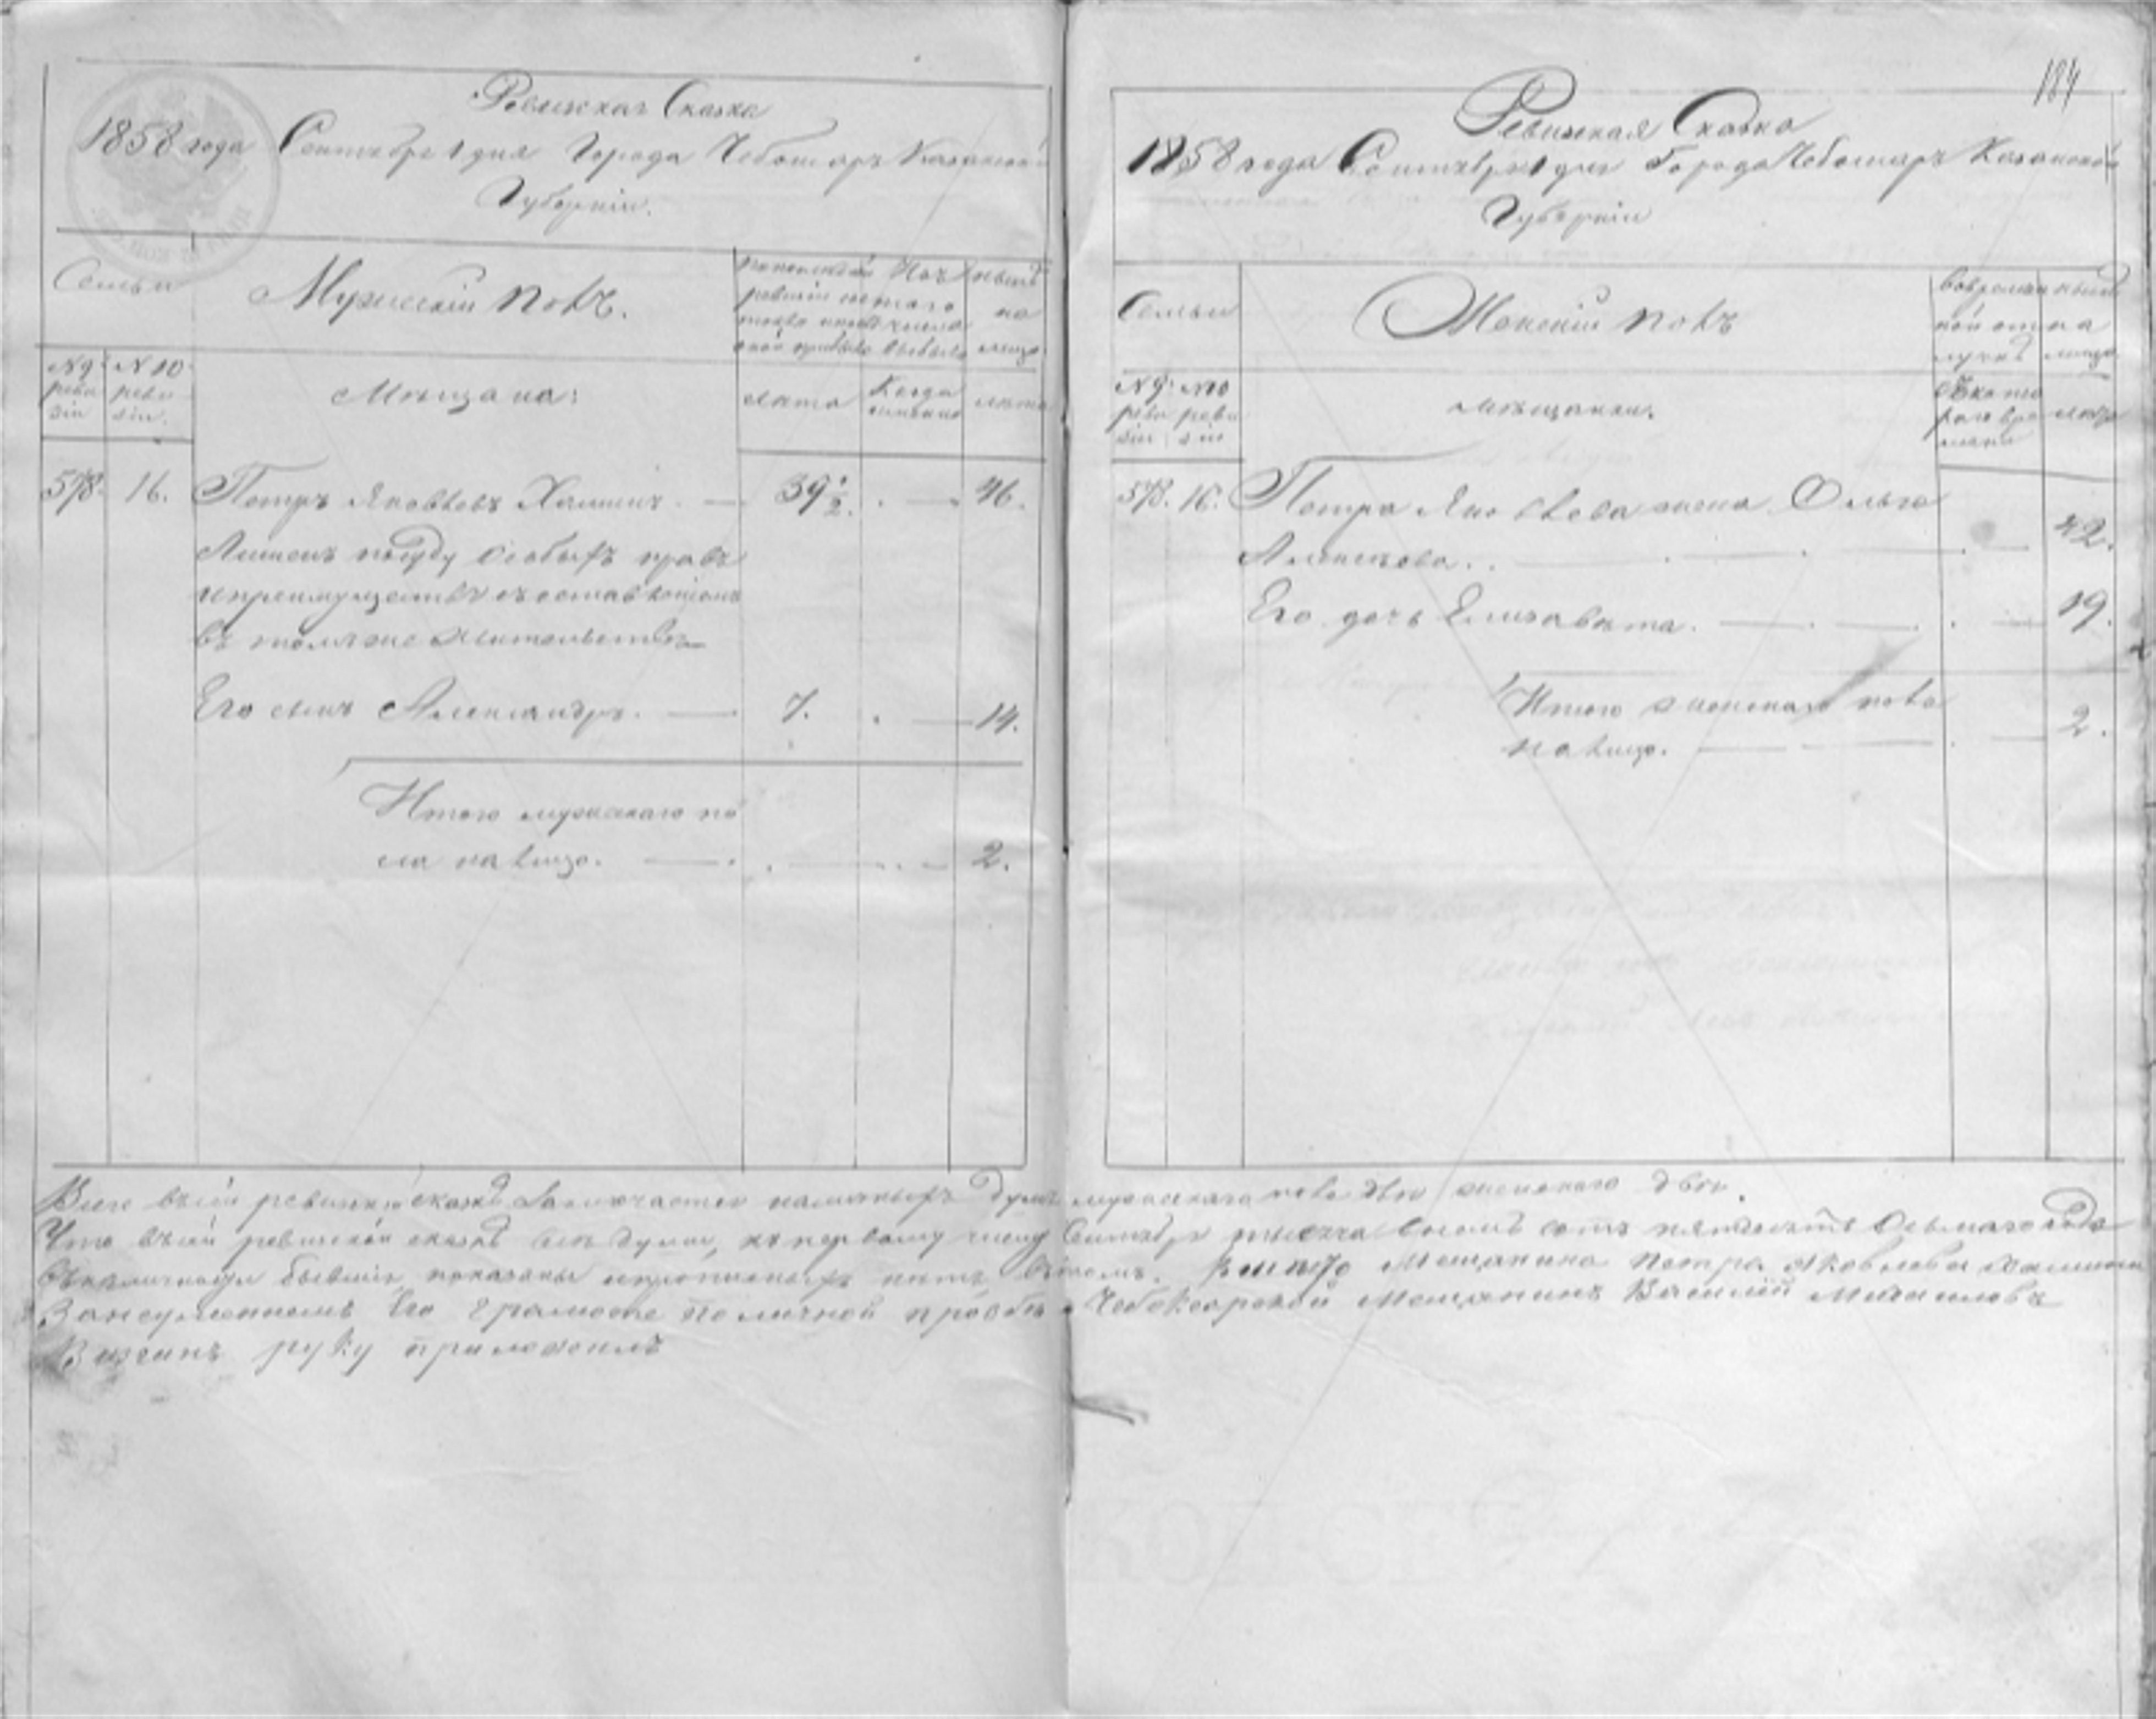 Ревизская Сказка
1858 года Сентября 1 дня Города Чебоксаръ Казанской
Губерніи.
Семьи
Мужескій полъ.
по последней
ревизіи
Изъ того
числа
выбыло
нынѣ
на
лицо
№ 9 реви зіи
№ 10 реви зіи.
Мѣщана:
лѣта
Когда именно
лѣта
578. 16. Петръ Яковлевъ Хамшинъ. 39 1/2. 46.
Лишенъ по суду особыхъ правъ
и преимуществъ съ оставленіемъ
въ томъ же жительствѣ
Его сынъ Александръ. 7. 14.
Итого мужскаго по
ла на лицо. 2.
184
Ревизская Сказка
1858 года Сентября 1 дня Города Чебоксаръ Казанской
Губерніи
Семьи
Женскій полъ
во времен
ной от
лучкѣ
нынѣ
на
лицо
№ 9. реви зіи
№ 10 реви зіи
мѣщанки.
Съ кото
раго вре
мени
лѣта
578. 16. Петра Яковлева жена Ольга
Алексѣева. 42.
Его дочь Елизавета. 19.
Итого женскаго пола
на лицо. 2.
Всего въ сей ревизской сказкѣ заключается наличныхъ душъ мужескаго пола двѣ женскаго двѣ.
Что въ сей ревизской сказкѣ всѣ души, къ первому числу Сентября тысяча восемь сотъ пятьдесятъ осьмаго года
въ наличности бывшія, показаны и прописныхъ нѣтъ, въ томъ. Мещанина Петра Яковлева Хамшина
За неумениемъ Его грамоте По личной прозбѣ Чебоксарской Мещанинъ Василій
руку приложилъ